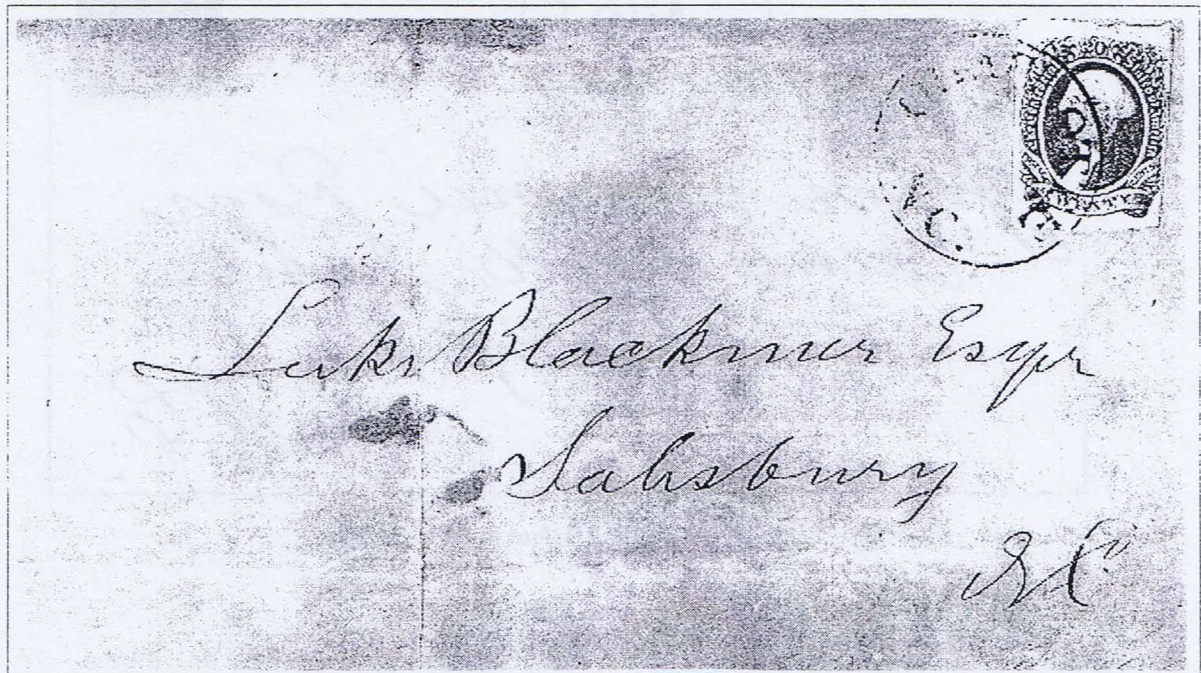 N.C.
Luke Blackmer Esqr
Salisbury
N.C.